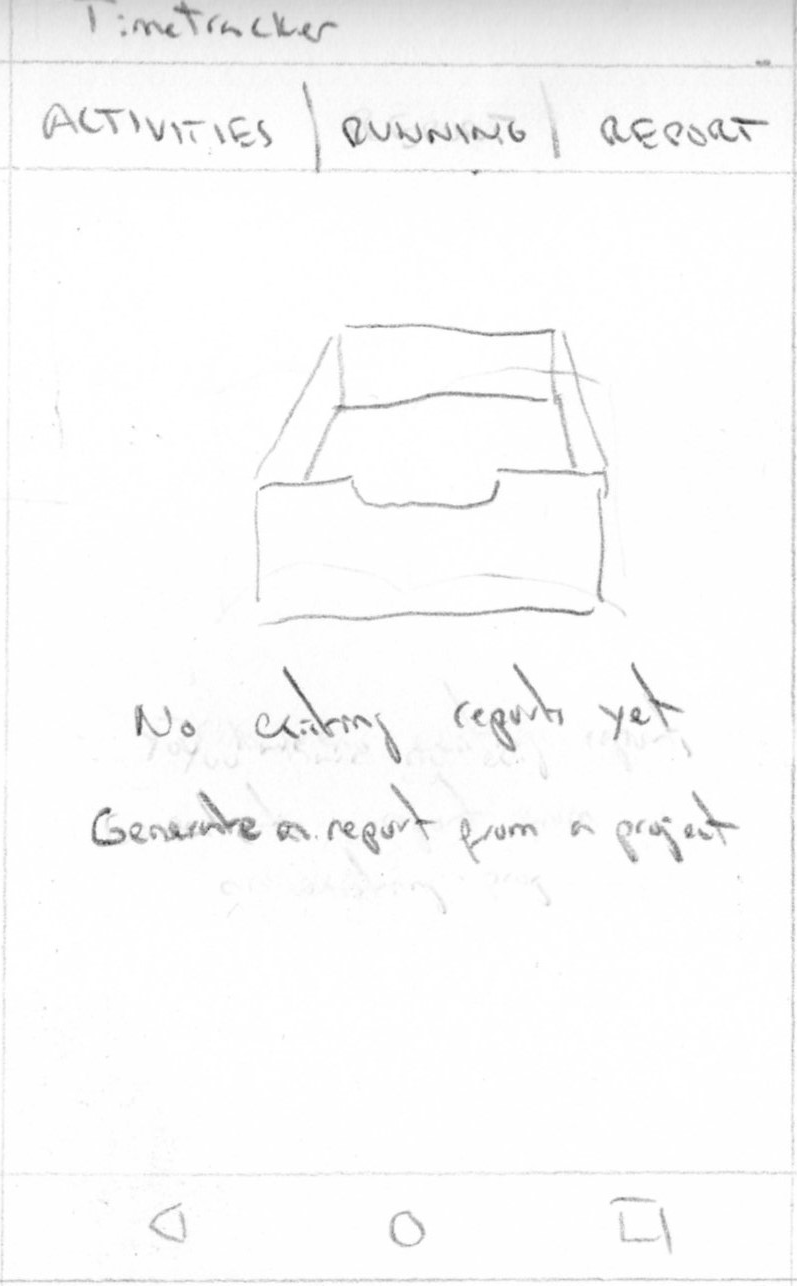 Timetracker
ACTIVITIES | RUNNING | REPORT
No existing reports yet
Generate a report from a project